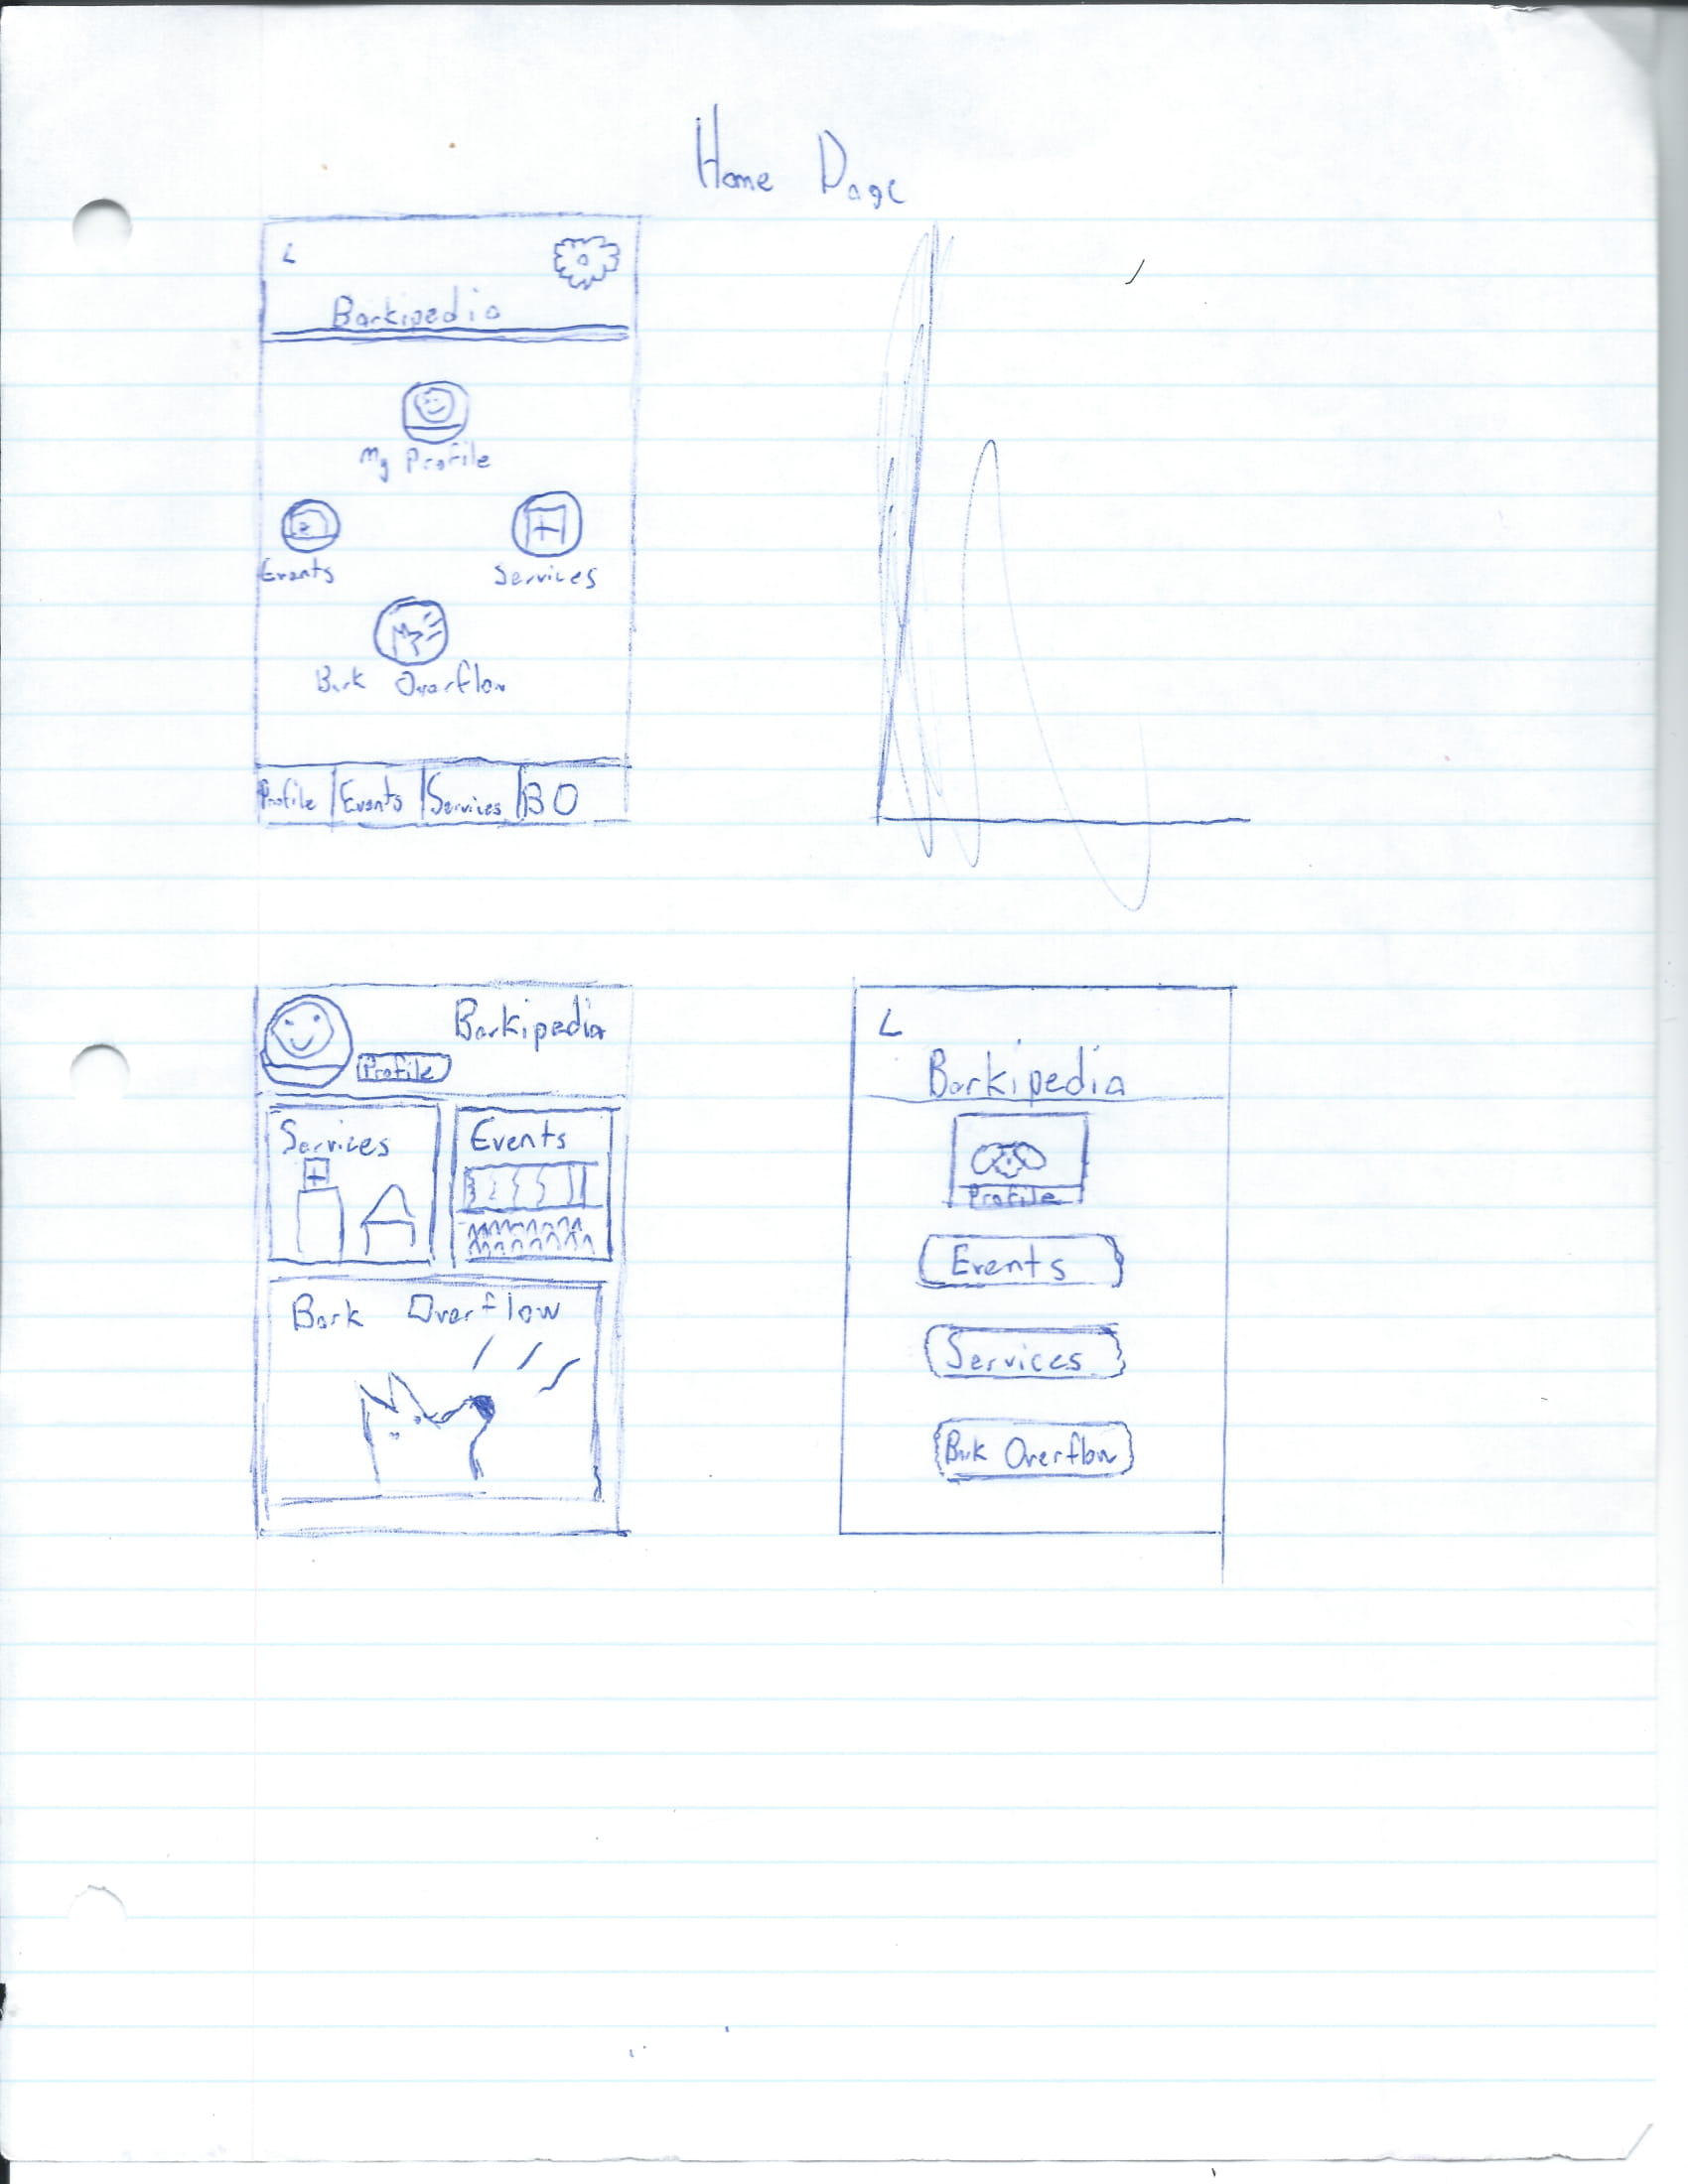 Home Page
Barkipedia
My Profile
Events
Services
Bark Overflow
Profile Events Services BO
Barkipedia
Profile
Services
Events
Bark Overflow
Barkipedia
Profile
Events
Services
Bark Overflow